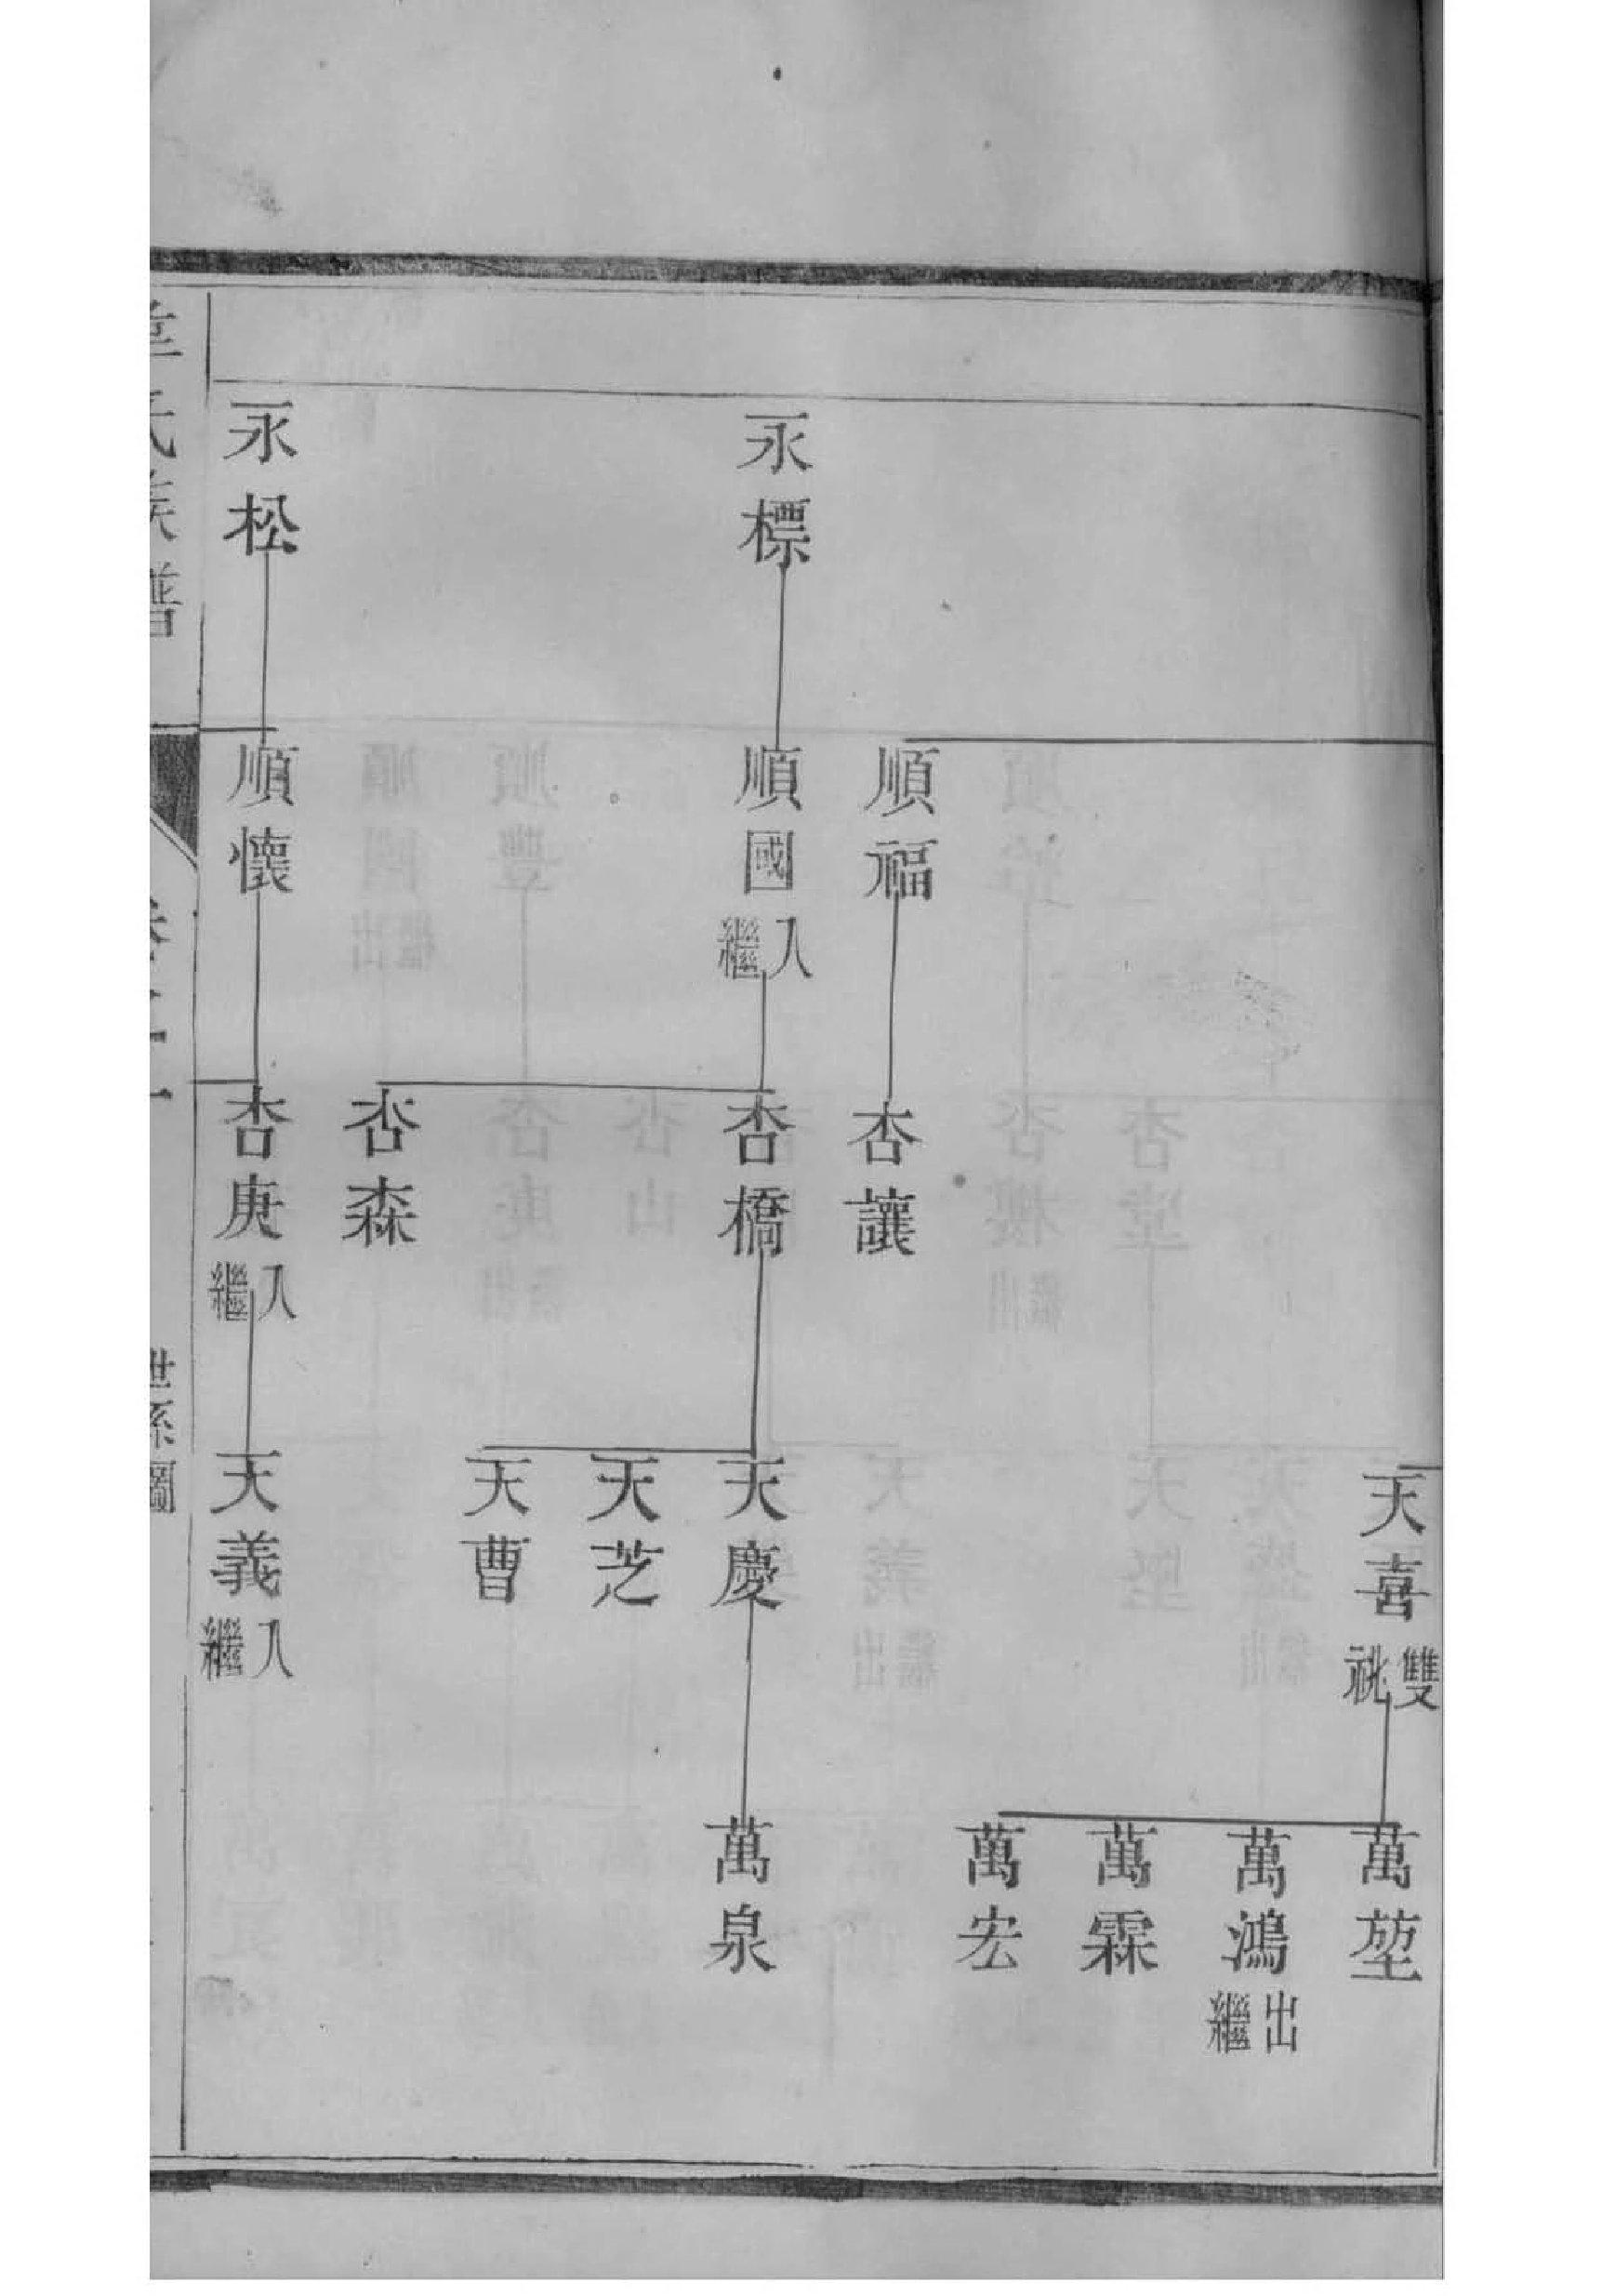 永標
永松
順福
順國入繼
順懷
杏讓
杏橋
杏森
杏庚入繼
天喜雙祧
天慶
天芝
天曹
天義入繼
萬堃
萬鴻出繼
萬霖
萬宏
萬泉
氏族譜
世系圖